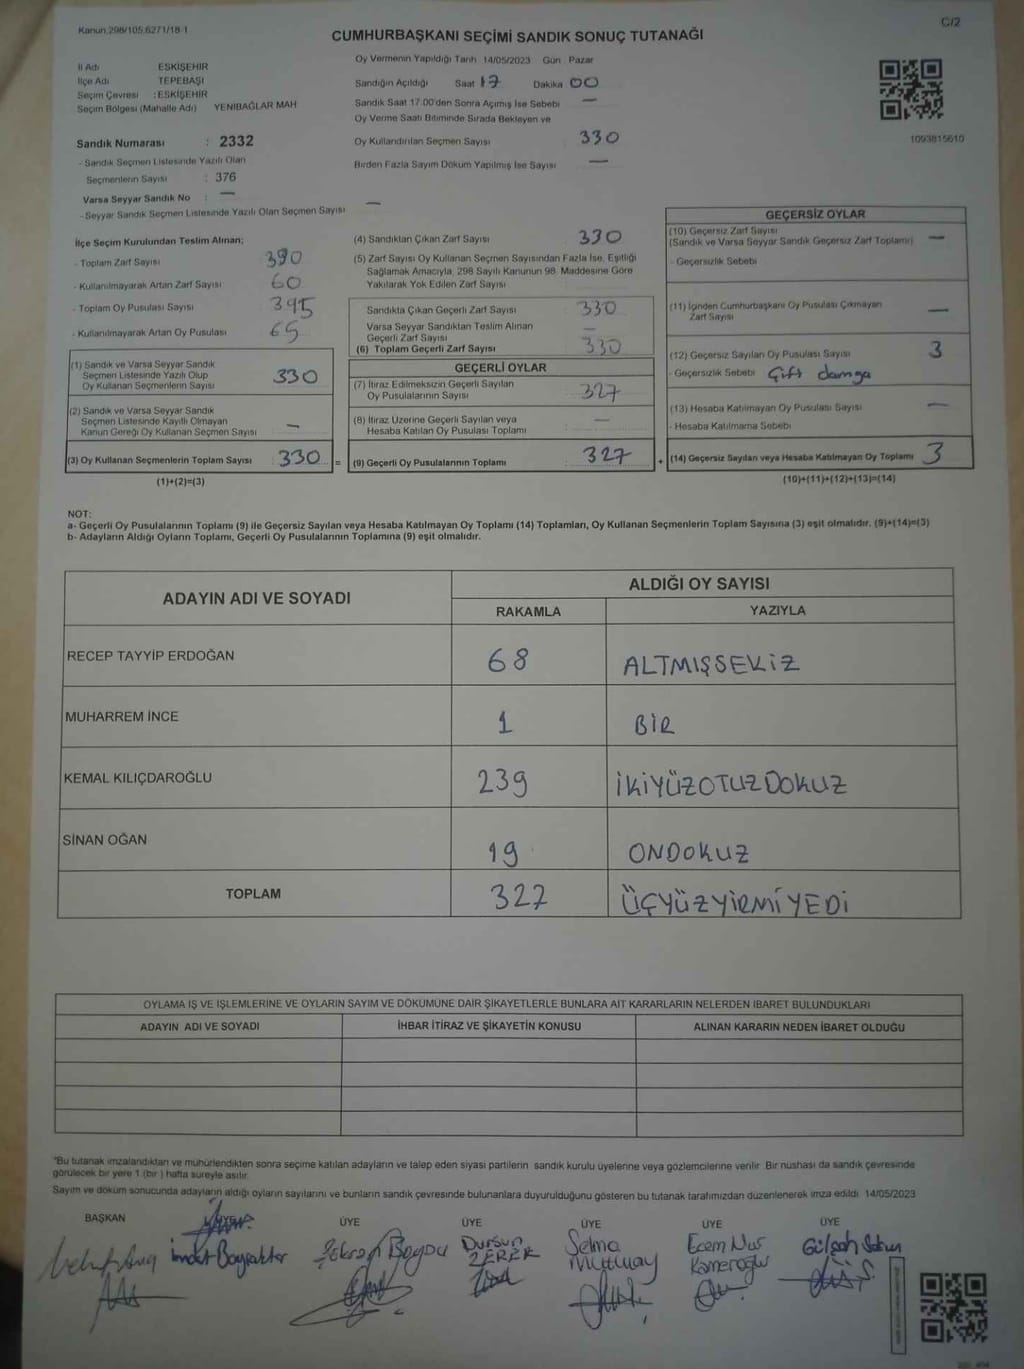 Kanun,298/105,6271/18-1
C/2
CUMHURBAŞKANI SEÇİMİ SANDIK SONUÇ TUTANAĞI
İl Adı ESKİŞEHİR
İlçe Adı TEPEBAŞI
Seçim Çevresi : ESKİŞEHİR
Seçim Bölgesi (Mahalle Adı) YENİBAĞLAR MAH
Sandık Numarası : 2332
- Sandık Seçmen Listesinde Yazılı Olan
Seçmenlerin Sayısı : 376
Varsa Seyyar Sandık No : —
- Seyyar Sandık Seçmen Listesinde Yazılı Olan Seçmen Sayısı —
Oy Vermenin Yapıldığı Tarih 14/05/2023 Gün Pazar
Sandığın Açıldığı Saat 17 Dakika 00
Sandık Saat 17.00'den Sonra Açımış İse Sebebi —
Oy Verme Saati Bitiminde Sırada Bekleyen ve
Oy Kullandırılan Seçmen Sayısı 330
Birden Fazla Sayım Döküm Yapılmış İse Sayısı —
1093815610
İlçe Seçim Kurulundan Teslim Alınan;
- Toplam Zarf Sayısı 390
- Kullanılmayarak Artan Zarf Sayısı 60
- Toplam Oy Pusulası Sayısı 395
- Kullanılmayarak Artan Oy Pusulası 65
(1) Sandık ve Varsa Seyyar Sandık
Seçmen Listesinde Yazılı Olup
Oy Kullanan Seçmenlerin Sayısı 330
(2) Sandık ve Varsa Seyyar Sandık
Seçmen Listesinde Kayıtlı Olmayan
Kanun Gereği Oy Kullanan Seçmen Sayısı —
(3) Oy Kullanan Seçmenlerin Toplam Sayısı : 330 =
(1)+(2)=(3)
(4) Sandıktan Çıkan Zarf Sayısı 330
(5) Zarf Sayısı Oy Kullanan Seçmen Sayısından Fazla İse, Eşitliği
Sağlamak Amacıyla, 298 Sayılı Kanunun 98. Maddesine Göre
Yakılarak Yok Edilen Zarf Sayısı
Sandıkta Çıkan Geçerli Zarf Sayısı : 330
Varsa Seyyar Sandıktan Teslim Alınan
Geçerli Zarf Sayısı —
(6) Toplam Geçerli Zarf Sayısı : 330
GEÇERLİ OYLAR
(7) İtiraz Edilmeksizin Geçerli Sayılan
Oy Pusulalarının Sayısı : 327
(8) İtiraz Üzerine Geçerli Sayılan veya
Hesaba Katılan Oy Pusulası Toplamı : —
(9) Geçerli Oy Pusulalarının Toplamı : 327 +
GEÇERSİZ OYLAR
(10) Geçersiz Zarf Sayısı
(Sandık ve Varsa Seyyar Sandık Geçersiz Zarf Toplamı) —
- Geçersizlik Sebebi
(11) İçinden Cumhurbaşkanı Oy Pusulası Çıkmayan
Zarf Sayısı —
(12) Geçersiz Sayılan Oy Pusulası Sayısı 3
- Geçersizlik Sebebi Çift damga
(13) Hesaba Katılmayan Oy Pusulası Sayısı —
- Hesaba Katılmama Sebebi
(14) Geçersiz Sayılan veya Hesaba Katılmayan Oy Toplamı 3
(10)+(11)+(12)+(13)=(14)
NOT:
a- Geçerli Oy Pusulalarının Toplamı (9) ile Geçersiz Sayılan veya Hesaba Katılmayan Oy Toplamı (14) Toplamları, Oy Kullanan Seçmenlerin Toplam Sayısına (3) eşit olmalıdır. (9)+(14)=(3)
b- Adayların Aldığı Oyların Toplamı, Geçerli Oy Pusulalarının Toplamına (9) eşit olmalıdır.
ADAYIN ADI VE SOYADI
ALDIĞI OY SAYISI
RAKAMLA YAZIYLA
RECEP TAYYİP ERDOĞAN 68 ALTMIŞSEKİZ
MUHARREM İNCE 1 BİR
KEMAL KILIÇDAROĞLU 239 İKİYÜZOTUZDOKUZ
SİNAN OĞAN 19 ONDOKUZ
TOPLAM 327 ÜÇYÜZYİRMİYEDİ
OYLAMA İŞ VE İŞLEMLERİNE VE OYLARIN SAYIM VE DÖKÜMÜNE DAİR ŞİKAYETLERLE BUNLARA AİT KARARLARIN NELERDEN İBARET BULUNDUKLARI
ADAYIN ADI VE SOYADI İHBAR İTİRAZ VE ŞİKAYETİN KONUSU ALINAN KARARIN NEDEN İBARET OLDUĞU
*Bu tutanak imzalandıktan ve mühürlendikten sonra seçime katılan adayların ve talep eden siyasi partilerin sandık kurulu üyelerine veya gözlemcilerine verilir. Bir nüshası da sandık çevresinde
görülecek bir yere 1 (bir ) hafta süreyle asılır.
Sayım ve döküm sonucunda adayların aldığı oyların sayılarını ve bunların sandık çevresinde bulunanlara duyurulduğunu gösteren bu tutanak tarafımızdan düzenlenerek imza edildi 14/05/2023
BAŞKAN ÜYE ÜYE ÜYE ÜYE ÜYE ÜYE
İmdat Bayraktar
Dursun
ZEREK
Selma
Mutluay
Ecem Nur
Kameroğlu
Gülşah